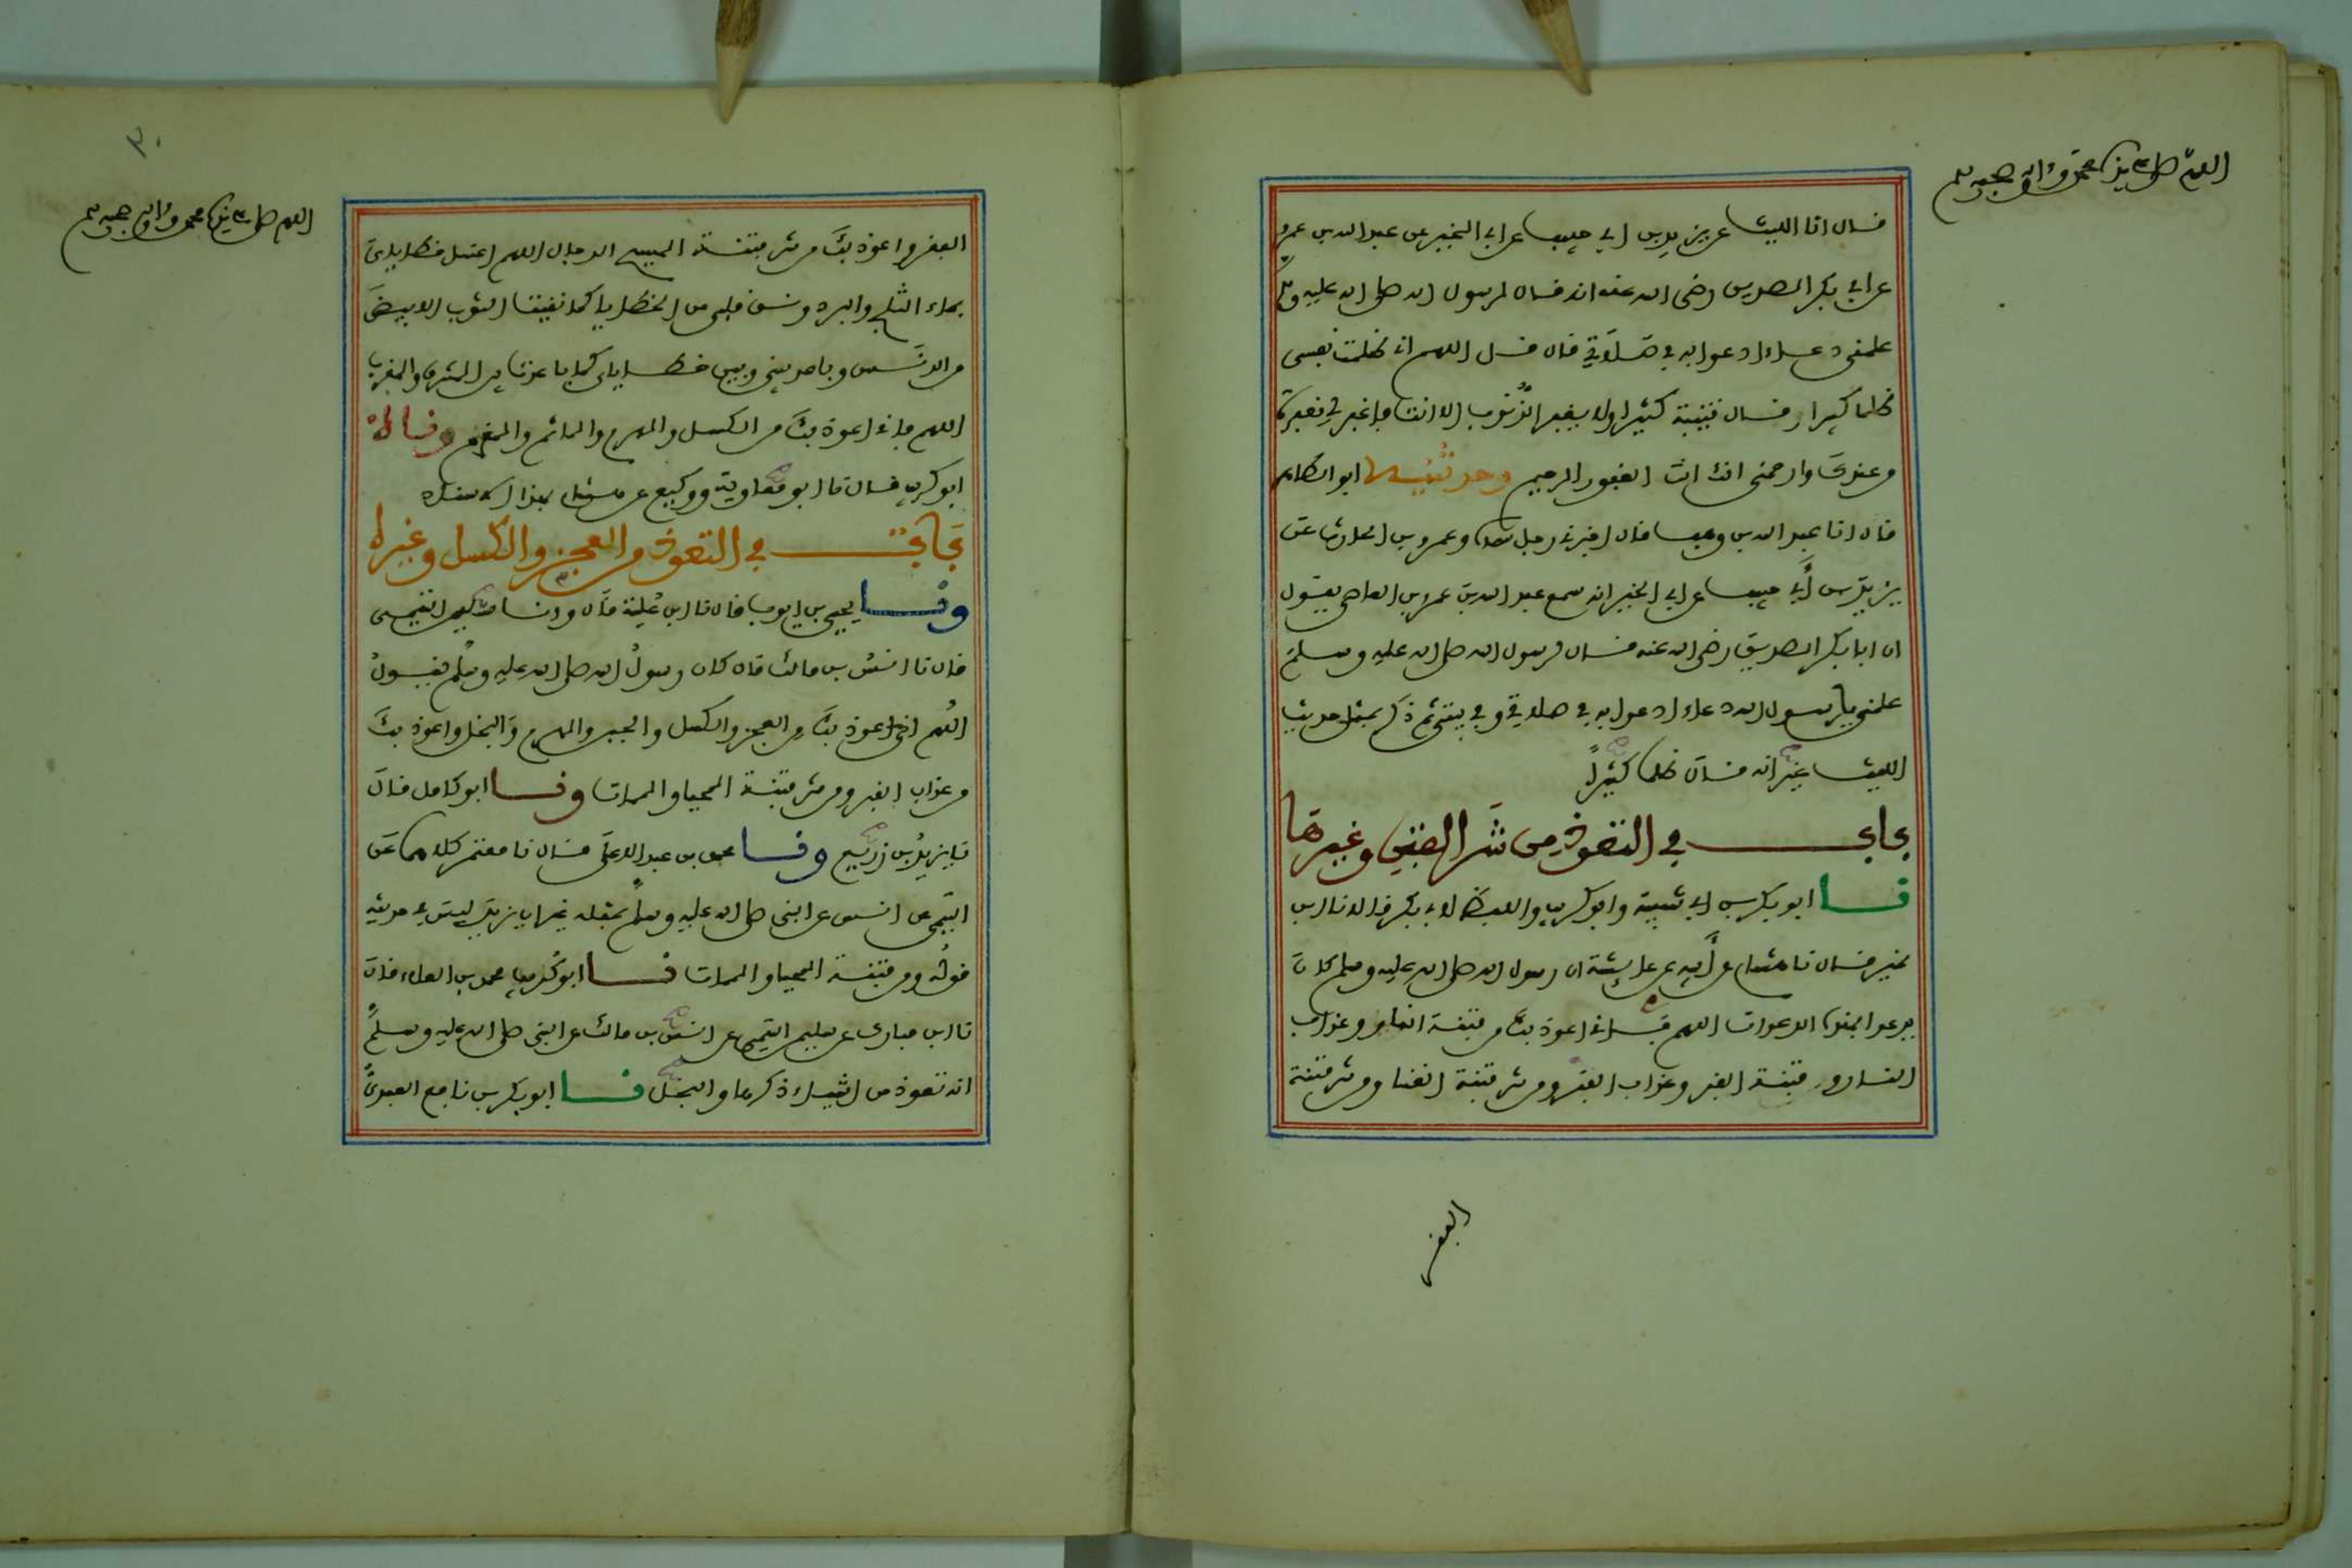 اللهم صل على سيدنا محمد وءاله وصحبه وسلم
قال انا الليث عن يزيد بن ابي حبيب عن ابي الخير عن عبد الله بن عمرو
عن ابي بكر الصديق رضي الله عنه انه قال لرسول الله صلى الله عليه وسلم
علمني دعاء ادعوا به في صلاتي قال قل اللهم اني ظلمت نفسي
ظلما كبيرا وقال قتيبة كثيرا ولا يغفر الذنوب الا انت فاغفر لي مغفرة
من عندك وارحمني انك انت الغفور الرحيم وحدثنيه ابو الطاهر
قال انا عبد الله بن وهب قال اخبرني رجل سماه وعمرو بن الحارث عن
يزيد بن أبي حبيب عن ابي الخير انه سمع عبد الله بن عمرو بن العاصي يقول
ان ابا بكر الصديق رضي الله عنه قال لرسول الله صلى الله عليه وسلم
علمني يا رسول الله دعاء ادعوا به في صلاتي وفي بيتي ثم ذكر بمثل حديث
الليث غير انه قال ظلما كثيراً
باب في التعوذ من شر الفتن وغيرها
نا ابو بكر بن ابي شيبة وابو كريب واللفظ لابي بكر قالا نا ابن
نمير قال نا هشام عن أبيه عن عايشة ان رسول الله صلى الله عليه وسلم كان
يدعوا بهؤلا الدعوات اللهم فاني اعوذ بك من فتنة النار وعذاب
النار وفتنة القبر وعذاب القبر ومن شر فتنة الغنا ومن شر فتنة
الفقر
٣٠
اللهم صل على سيدنا محمد وءاله وصحبه وسلم
الفقر واعوذ بك من شر فتنة المسيح الدجال اللهم اغسل خطاياي
بماء الثلج والبرد ونق قلبي من الخطايا كما نقيت الثوب الابيض
من الدنس وباعد بيني وبين خطاياي كما باعدت بين المشرق والمغرب
اللهم فاني اعوذ بك من الكسل والهرم والماثم والمغرم وناه
ابو كريب قال نا ابو معاوية ووكيع عن هشام بهذا الاسناد
باب في التعوذ من العجز والكسل وغيره
ونا يحيى بن ايوب قال نا ابن علية قال ونا سليمن التيمي
قال نا انس بن مالك قال كان رسول الله صلى الله عليه وسلم يقول
اللهم اني اعوذ بك من العجز والكسل والجبن والهرم والبخل واعوذ بك
من عذاب القبر ومن شر فتنة المحيا والممات ونا ابو كامل قال
نا يزيد بن زريع ونا محمد بن عبد الاعلى قال نا معتمر كلاهما عن
التيمي عن انس عن النبي صلى الله عليه وسلم بمثله غير ان يزيد ليس في حديثه
قوله ومن فتنة المحيا والممات نا ابو كريب محمد بن العلاء قال
نا ابن مبارك عن سليمن التيمي عن انس بن مالك عن النبي صلى الله عليه وسلم
انه تعوذ من اشياء ذكرها والبخل نا ابو بكر بن نافع العبدي